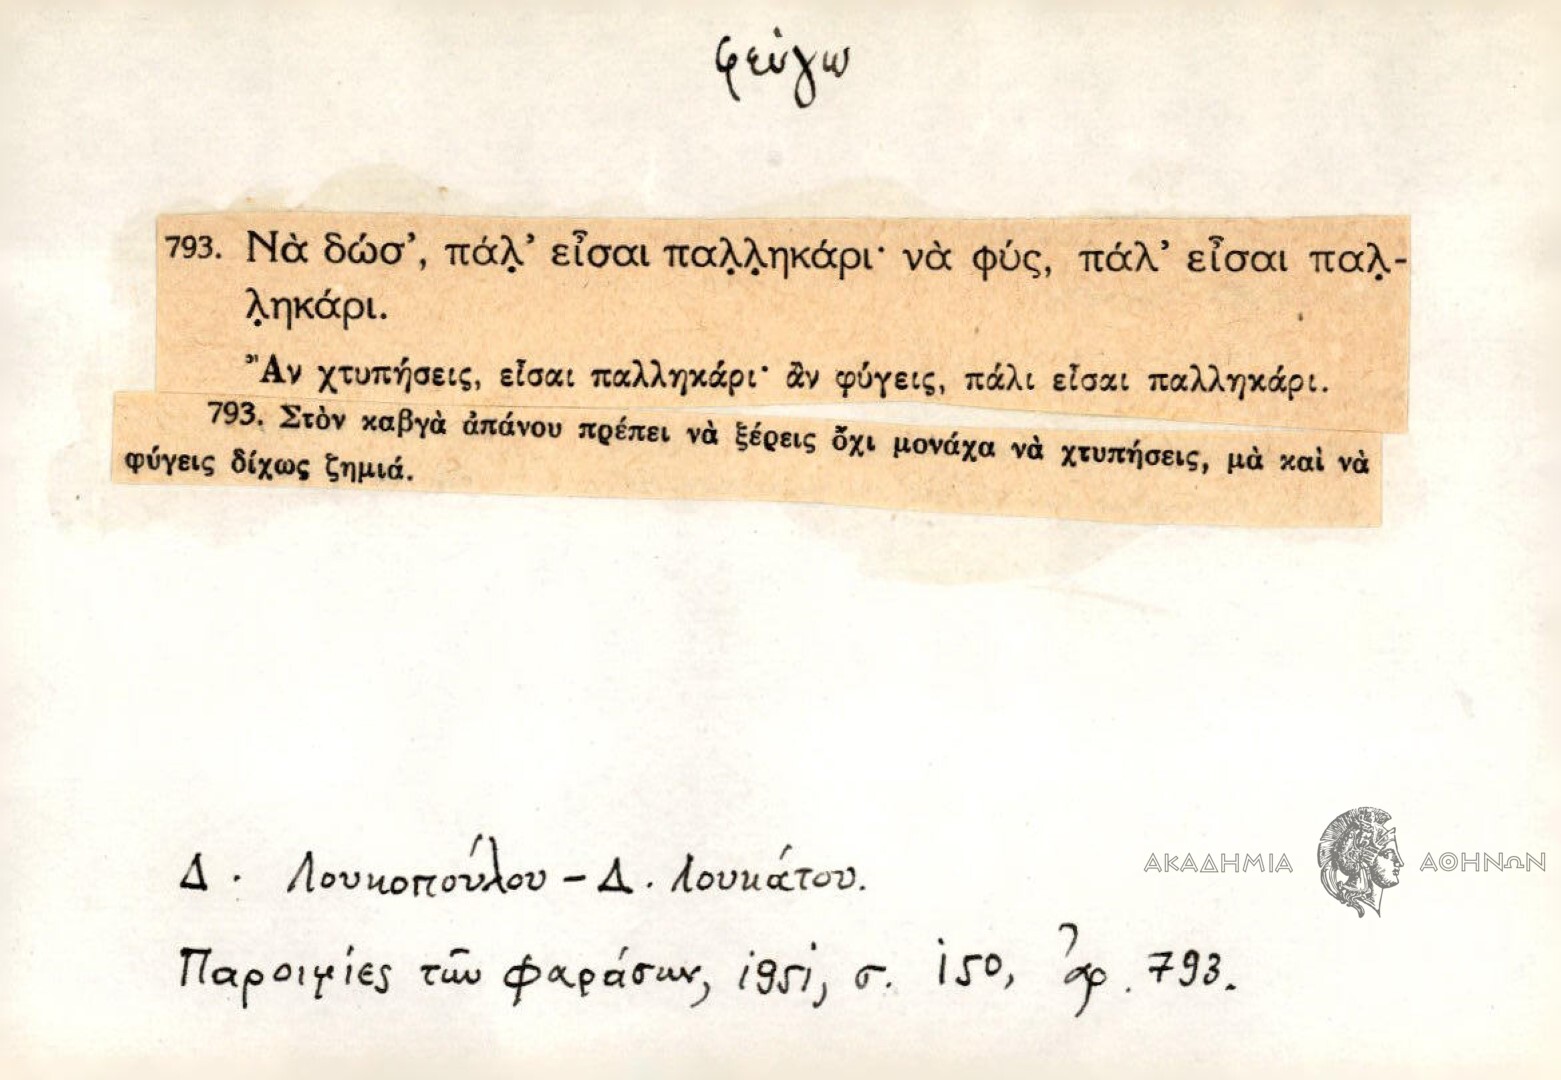 φεύγω
793. Νὰ δώσ’, πάλ̣’ εἶσαι παλ̣λ̣ηκάρι· νὰ φύς, πάλ’ εἶσαι παλ̣-
λ̣ηκάρι.
Ἂν χτυπήσεις, εἶσαι παλληκάρι· ἂν φύγεις, πάλι εἶσαι παλληκάρι.
793. Στὸν καβγὰ ἀπάνου πρέπει νὰ ξέρεις ὄχι μονάχα νὰ χτυπήσεις, μὰ καὶ νὰ
φύγεις δίχως ζημιά.
Δ. Λουκοπούλου – Δ. Λουκάτου.
ΑΚΑΔΗΜΙΑ ΑΘΗΝΩΝ
Παροιμίες τῶν Φαράσων, 1951, σ. 150, ἀρ. 793.